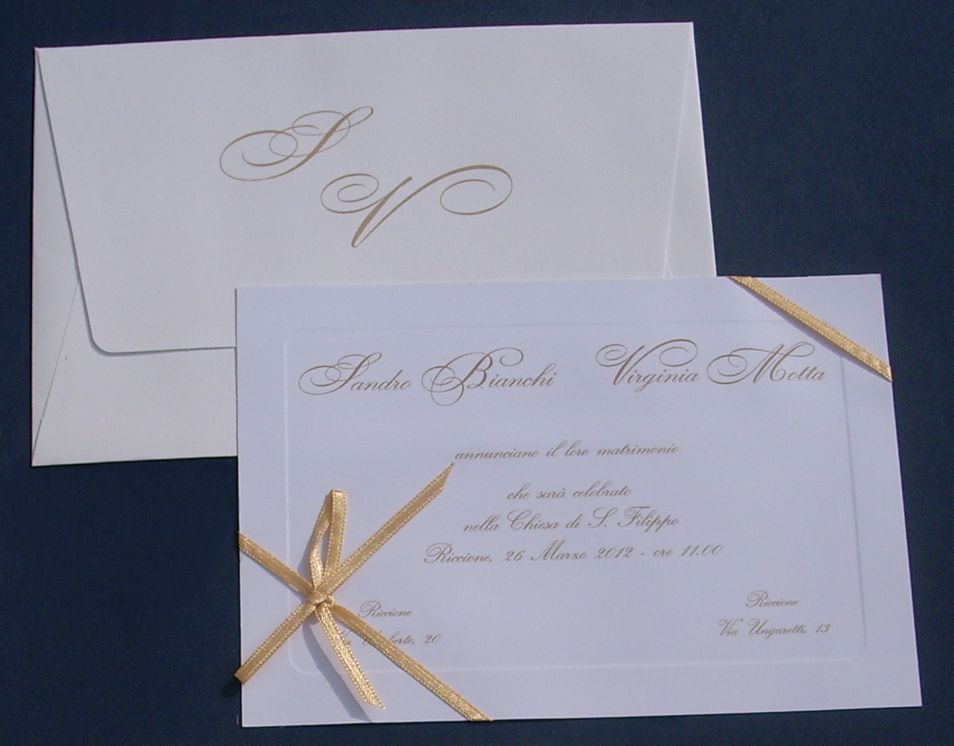 S
V
Sandro Bianchi Virginia Motta
annunciano il loro matrimonio
che sarà celebrato
nella Chiesa di S. Filippo
Riccione, 26 Marzo 2012 - ore 11.00
Riccione
20
Riccione
Via Ungaretti, 13